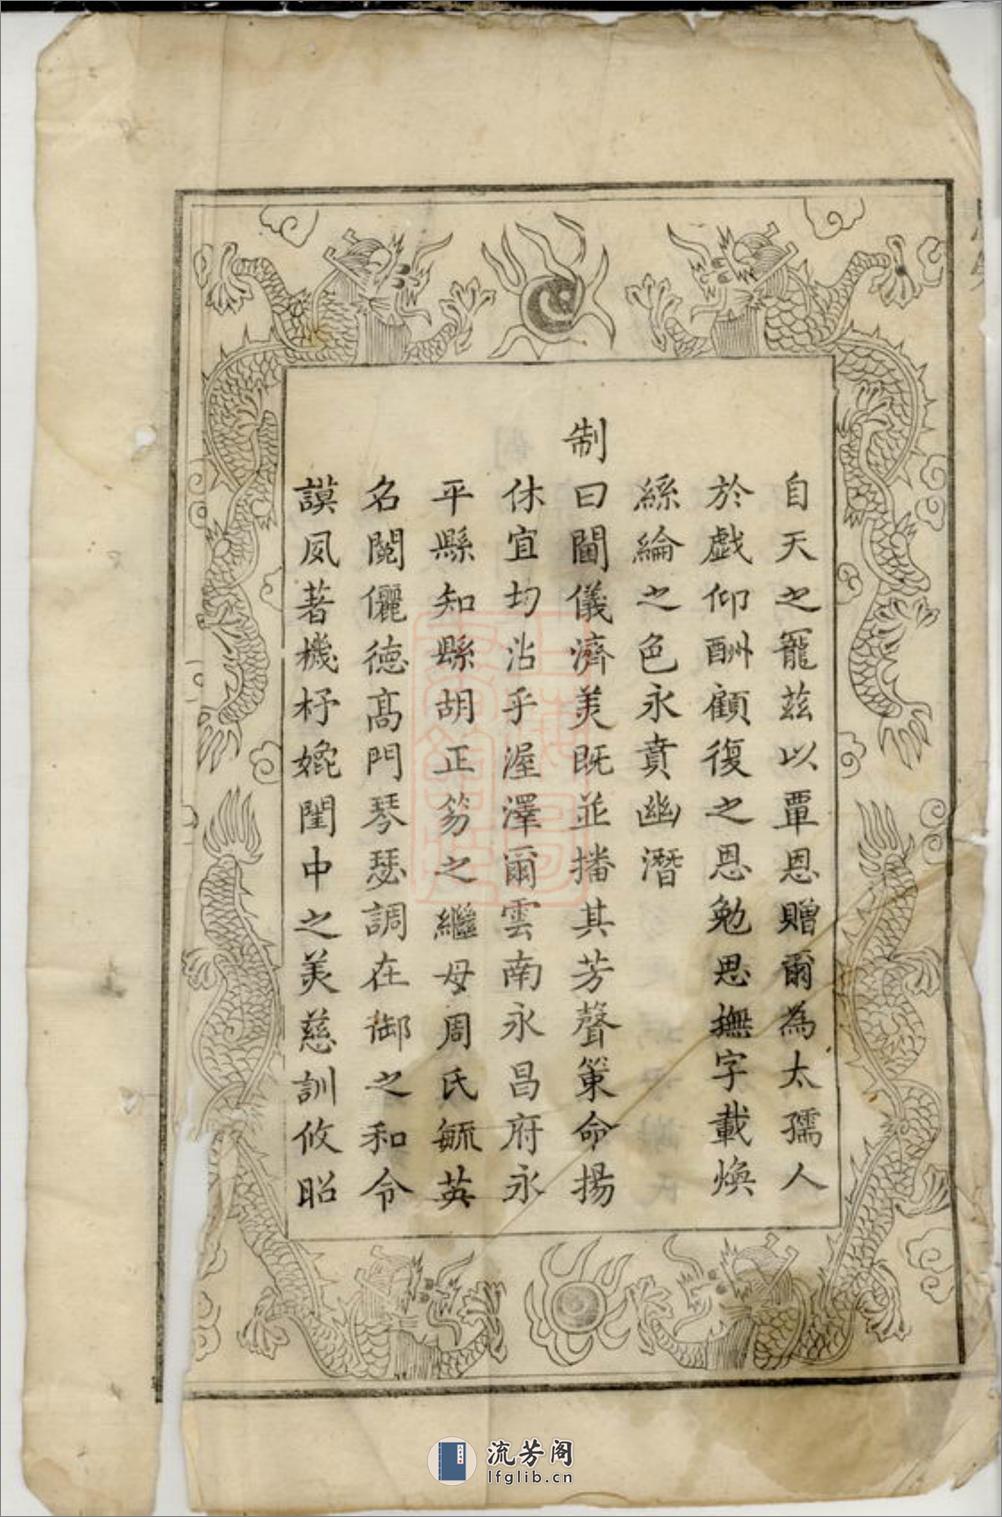 自天之寵茲以覃恩贈爾為太孺人
於戲仰酬顧復之恩勉思撫字載煥
絲綸之色永賁幽潛
制曰閫儀濟美既並播其芳聲策命揚
休宜均沾乎渥澤爾雲南永昌府永
平縣知縣胡正笏之繼母周氏毓英
名閥儷德高門琴瑟調在御之和令
謨夙著機杼嫓閨中之美慈訓攸昭
流芳阁
lfglib.cn